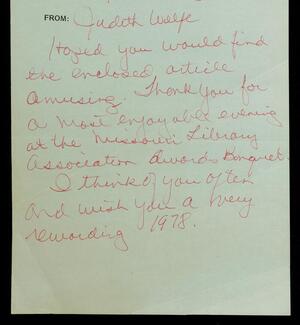 FROM: Judith Wolfe
Hoped you would find
the enclosed article
amusing. Thank you for
a most enjoyable evening
at the Missouri Library
Association Awards Banquet.
I think of you often
and wish you a very
rewarding 1978.